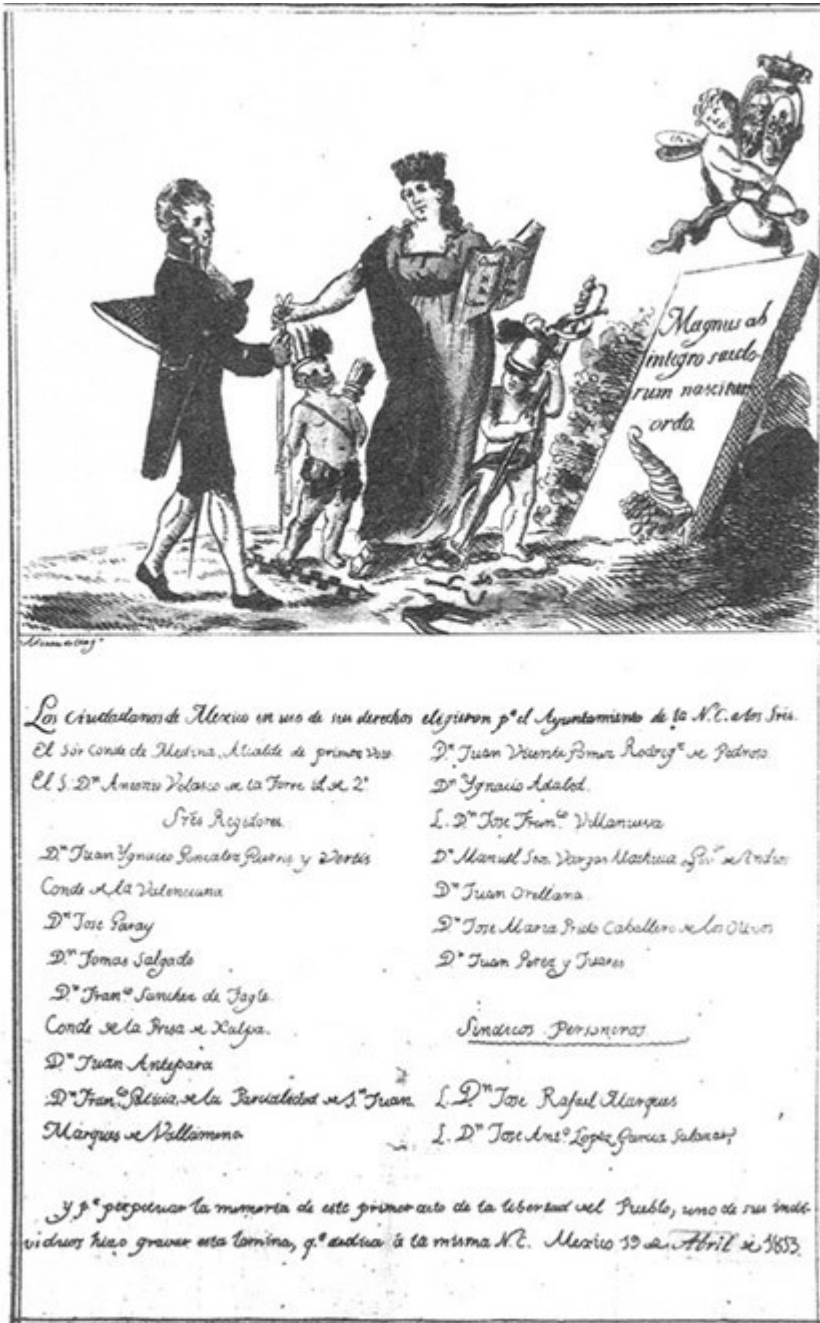 Magnus ab
integro saeclo-
rum nascitur
ordo.
Los Ciudadanos de Mexico en uso de sus derechos eligieron pª el Ayuntamiento de la N.C. a los Sres.
El Sôr Conde de Medina, Alcalde de primer Voto.
El S. Dⁿ Antonio Velasco de la Torre id. de 2º
Sres Regidores.
Dⁿ Juan Ygnacio Gonzalez Guerra y Vertis
Conde de la Valenciana
Dⁿ Jose Garay
Dⁿ Tomas Salgado
Dⁿ Franco Sanchez de Tagle.
Conde de la Presa de Xalpa.
Dⁿ Juan Antepara
Dⁿ Franco Galicia, de la Parcialedad de Sⁿ Juan.
Marques de Vallamena
Dⁿ Juan Vicente Gomez Rodrigz de Pedroso.
Dⁿ Ygnacio Adalod.
L. Dⁿ Jose Franco Villanueva
Dⁿ Manuel Stos. Vargas Machuca Govr de Indios
Dⁿ Juan Orellana.
Dⁿ Jose Maria Prieto Caballero de los Olivos
Dⁿ Juan Perez y Juares
Sindicos Personeros
L. Dⁿ Jose Rafael Marques
L. Dⁿ Jose Antº Lopez Garcia Salazar
y pª perpetuar la memoria de este primer acto de la libertad del Pueblo, uno de sus indi-
viduos hizo gravar esta lamina, q.ª dedica á la misma N.C. Mexico 19 de Abril de 1813.